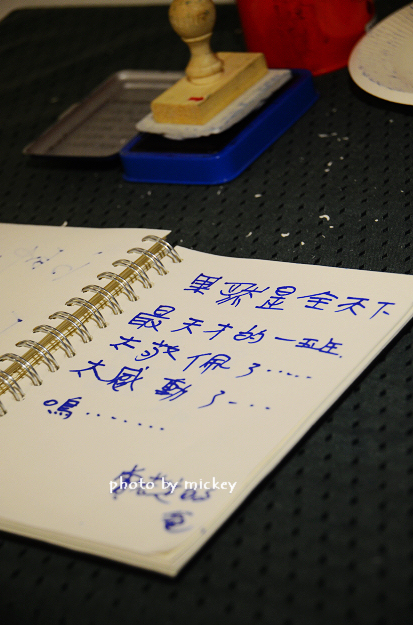 果然是全天下
最天才的一班.
太敬佩了.....
太感動了....
嗚........
photo by mickey